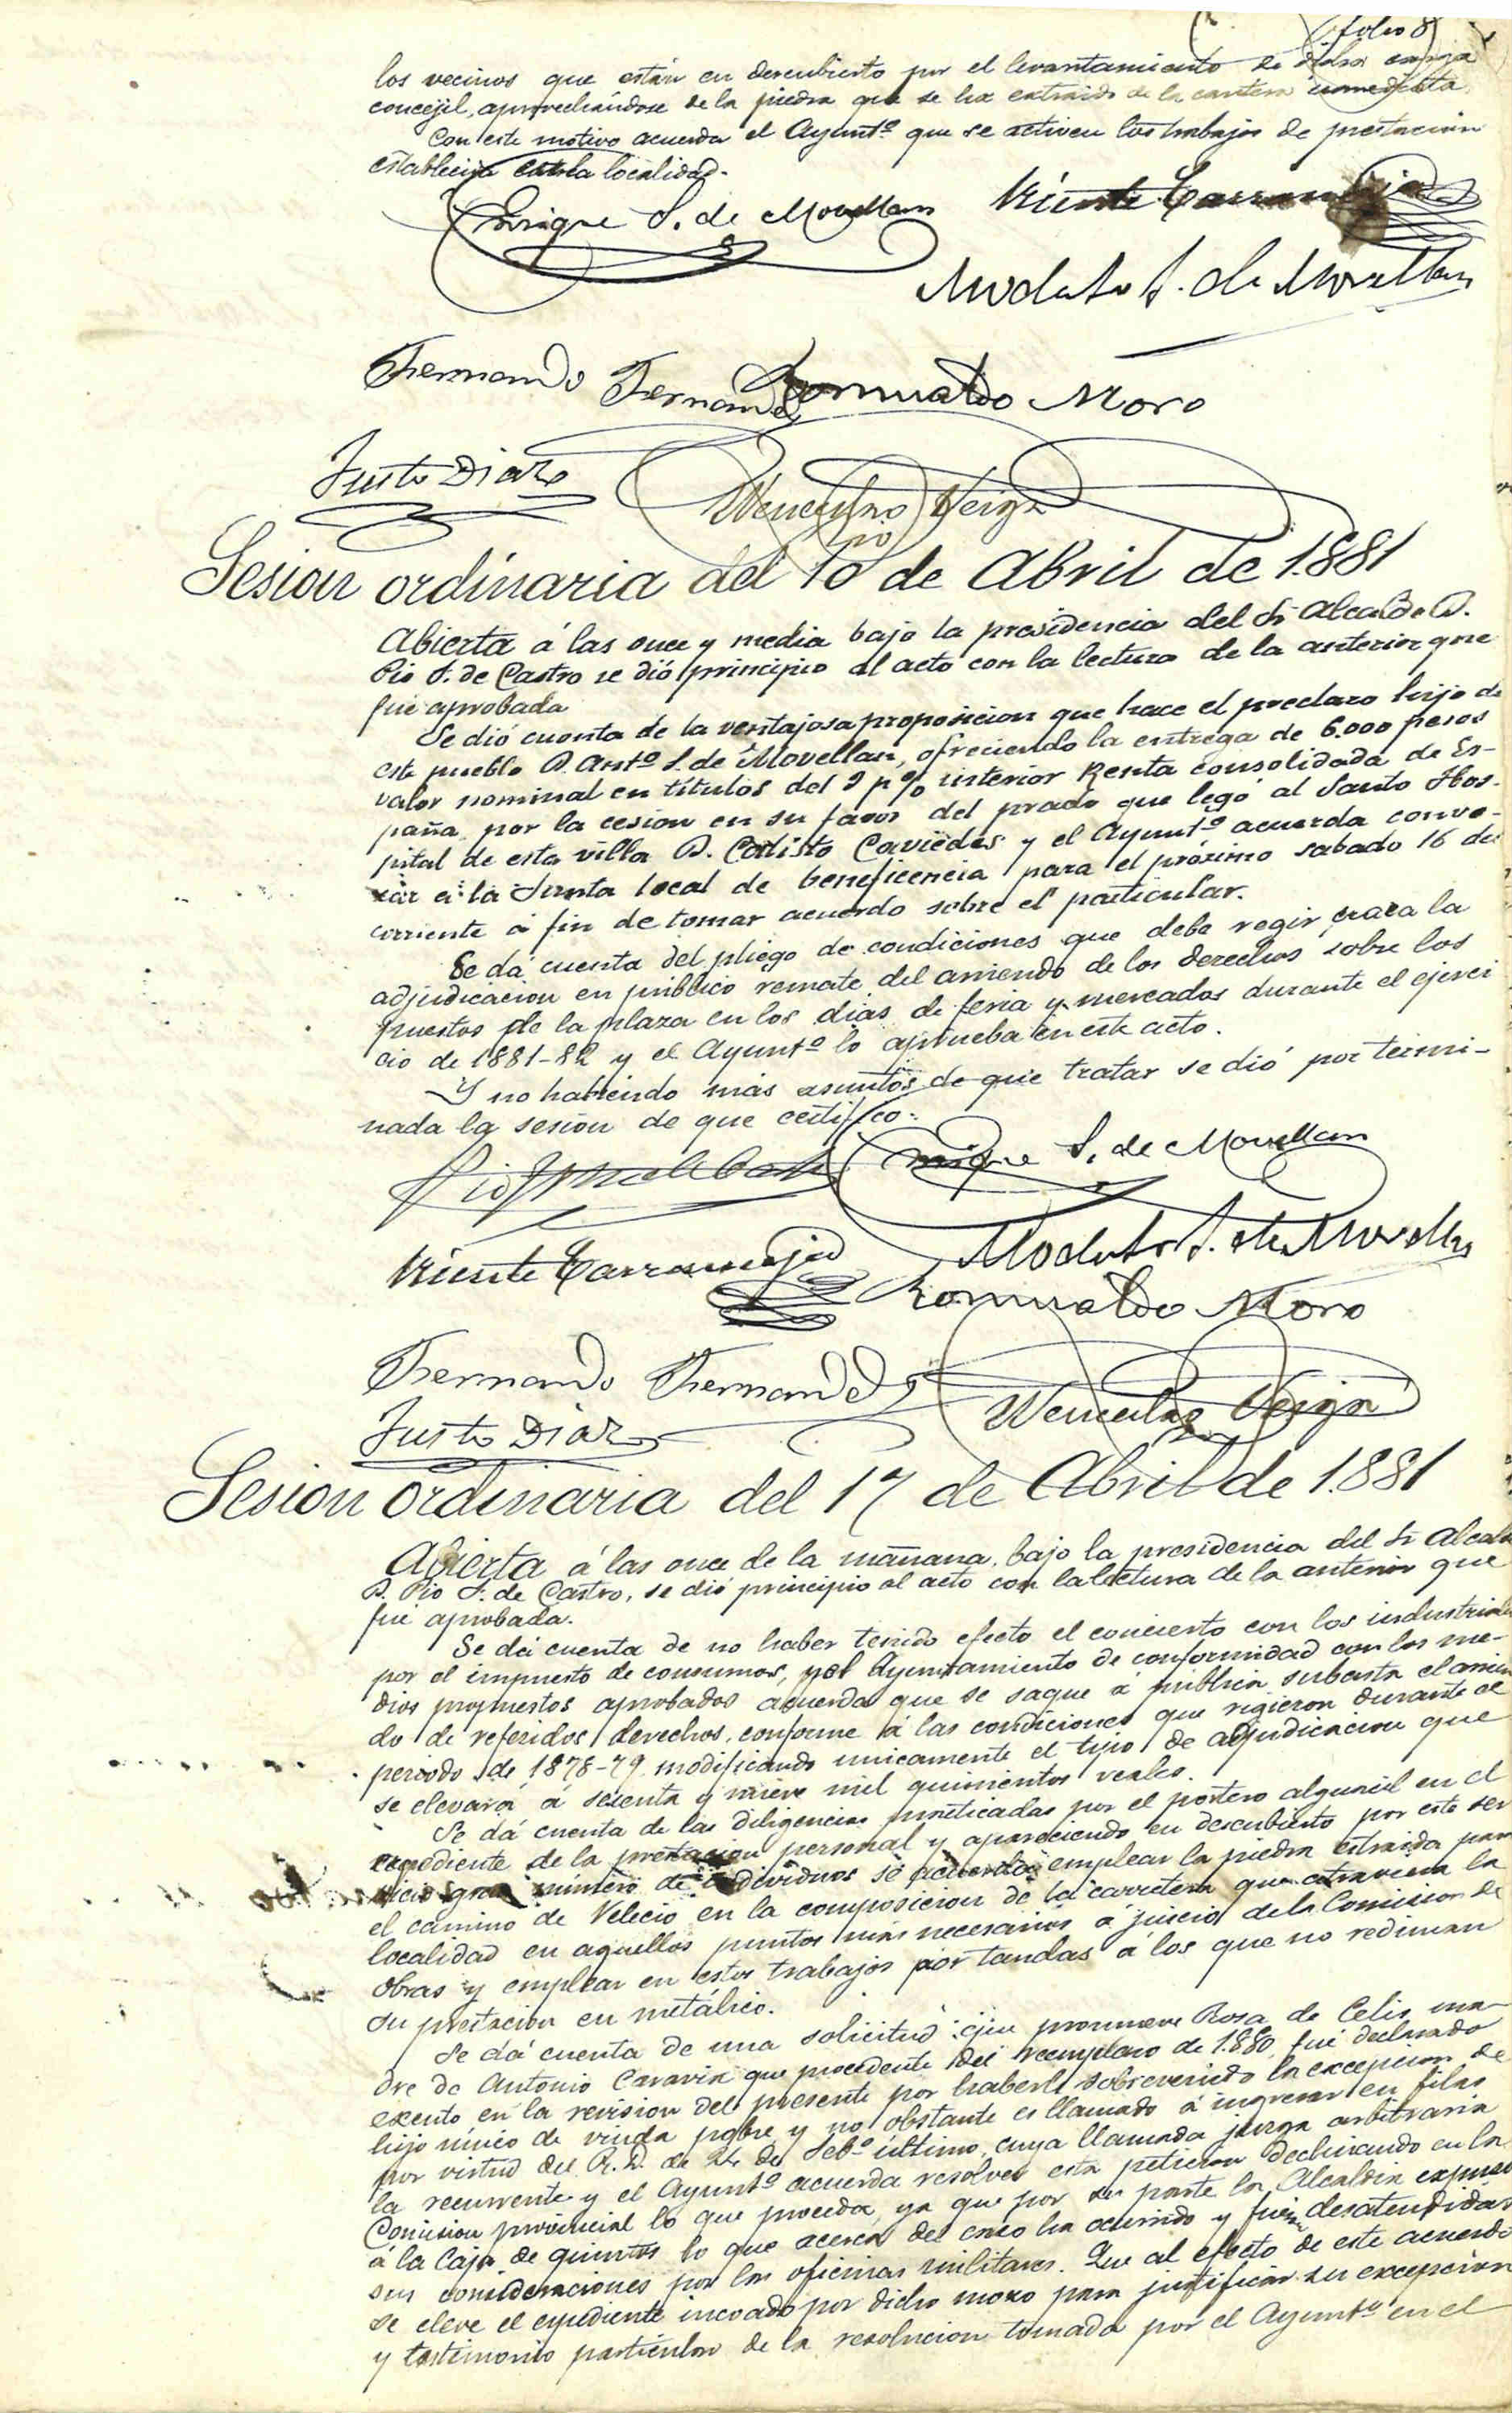 folio 8
los vecinos que están en descubierto por el levantamiento de dicha carga
concejil, aprovechándose de la piedra que se ha extraido de la cantera inmediata.
Con este motivo acuerda el Ayuntº que se activen los trabajos de prestacion
establecida en la localidad.
Enrique S. de Movellan Vicente Carramejia
Modesto S. de Movellan
Fernando Fernandez Romualdo Moro
Justo Diaz Wenceslao Veiga
Sesion ordinaria del 10 de Abril de 1881
Abierta á las once y media bajo la presidencia del Sr Alcalde D.
Pio S. de Castro se dió principio al acto con la lectura de la anterior que
fué aprobada
Se dió cuenta de la ventajosa proposicion que hace el preclaro hijo de
este pueblo D. Antº S. de Movellan, ofreciendo la entrega de 6.000 pesos
valor nominal en títulos del 3 p% interior Renta consolidada de Es-
paña por la cesion en su favor del prado que legó al Santo Hos-
pital de esta villa D. Calisto Caviedes y el Ayuntº acuerda convo-
car á la Junta local de beneficencia para el próximo sabado 16 del
corriente á fin de tomar acuerdo sobre el particular.
Se dá cuenta del pliego de condiciones que debe regir para la
adjudicacion en publico remate del arriendo de los derechos sobre los
puestos de la plaza en los dias de feria y mercados durante el ejerci
cio de 1881-82 y el Ayuntº lo aprueba en este acto.
Y no habiendo más asuntos de que tratar se dió por termi-
nada la sesion de que certifico.
Enrique S. de Movellan
Vicente Carramejia Modesto S. de Movellan
Romualdo Moro
Fernando Fernandez Wenceslao Veiga
Justo Diaz
Sesion ordinaria del 17 de Abril de 1881
Abierta á las once de la mañana, bajo la presidencia del Sr Alcalde
D. Pio S. de Castro, se dió principio al acto con la lectura de la anterior que
fué aprobada.
Se dá cuenta de no haber tenido efecto el concierto con los industriales
por el impuesto de consumos, y el Ayuntamiento de conformidad con los me-
dios propuestos aprobados acuerda que se saque á publica subasta el arrien
do de referidos derechos, conforme á las condiciones que rigieron durante el
periodo de 1878-79 modificando unicamente el tipo de adjudicacion que
se elevará á sesenta y nueve mil quinientos reales.
Se dá cuenta de las diligencias practicadas por el portero alguacil en el
expediente de la prestacion personal y apareciendo en descubierto por este ser
vicio gran número de individuos se acuerda emplear la piedra estraida para
el camino de Velecio en la composicion de la carretera que atraviesa la
localidad en aquellos puntos más necesarios á juicio de la Comision de
obras y emplear en estos trabajos por tandas á los que no rediman
su prestacion en metálico.
Se dá cuenta de una solicitud que promueve Rosa de Celis, ma-
dre de Antonio Caravia que procedente del reemplazo de 1.880, fué declarado
exento en la revision del presente por haberle sobrevenido la excepcion de
hijo único de viuda pobre y no obstante es llamado á ingresar en filas
por virtud del R. D. de 24 de Febº último, cuya llamada juzga arbitraria
la recurrente y el Ayuntº acuerda resolver esta peticion declinando en la
Comision provincial lo que proceda, ya que por su parte la Alcaldia expuso
á la Caja de quintos lo que acerca del caso ha ocurrido y fueron desatendidas
sus consideraciones por las oficinas militares. Que al efecto de este acuerdo
se eleve el expediente incoado por dicho mozo para justificar su excepcion
y testimonio particular de la resolucion tomada por el Ayuntº en el